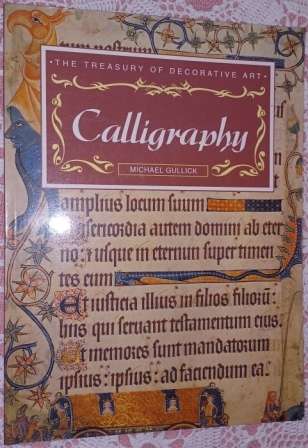 · THE TREASURY OF DECORATIVE ART ·
Calligraphy
MICHAEL GULLICK
amplius locum suum
isericordia autem domini ab eter
no : et usque in eternum super timen
tes eum
Et iusticia illius in filios filiorū
biis qui seruant testamentum eius.
Et memores sunt mandatorum
ipsius : ipsius : ad faciendum ea.